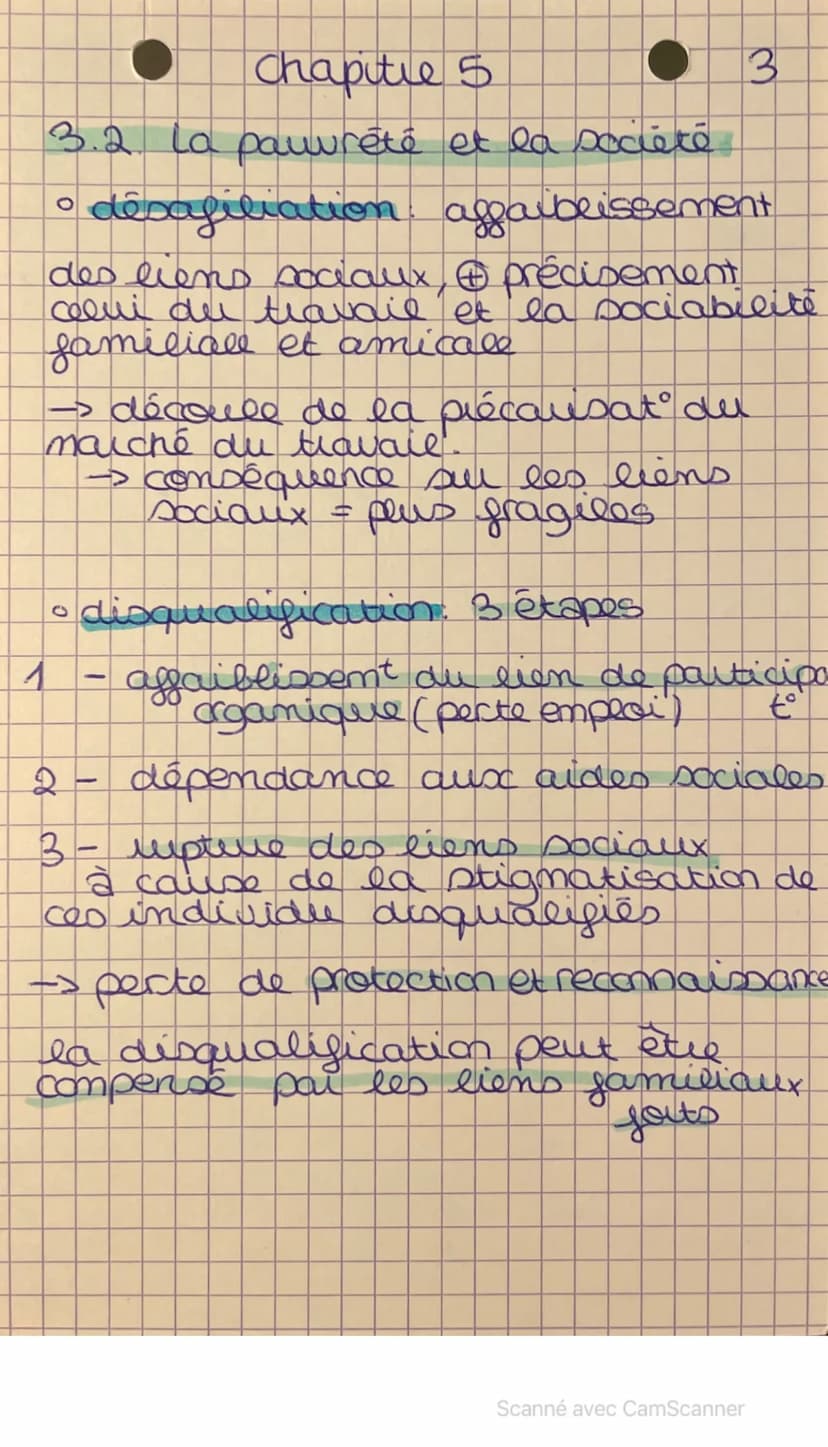 Chapitre 5 3
3.2. La pauvrété et la société
° désafiliation : affaiblissement
des liens sociaux, ⊕ précisement
celui du travail et la sociabilité
familiale et amicale
→ découle de la précarisat° du
marché du travail.
→ conséquence sur les liens
sociaux = plus fragiles
° disqualification : 3 étapes
1 - affaiblissemt du lien de participa
organique (perte emploi) t°
2 - dépendance aux aides sociales
3 - rupture des liens sociaux
à cause de la stigmatisation de
ces individu disqualifiés
→ perte de protection et reconnaissance
la disqualification peut être
compensé par les liens familiaux
forts
Scanné avec CamScanner